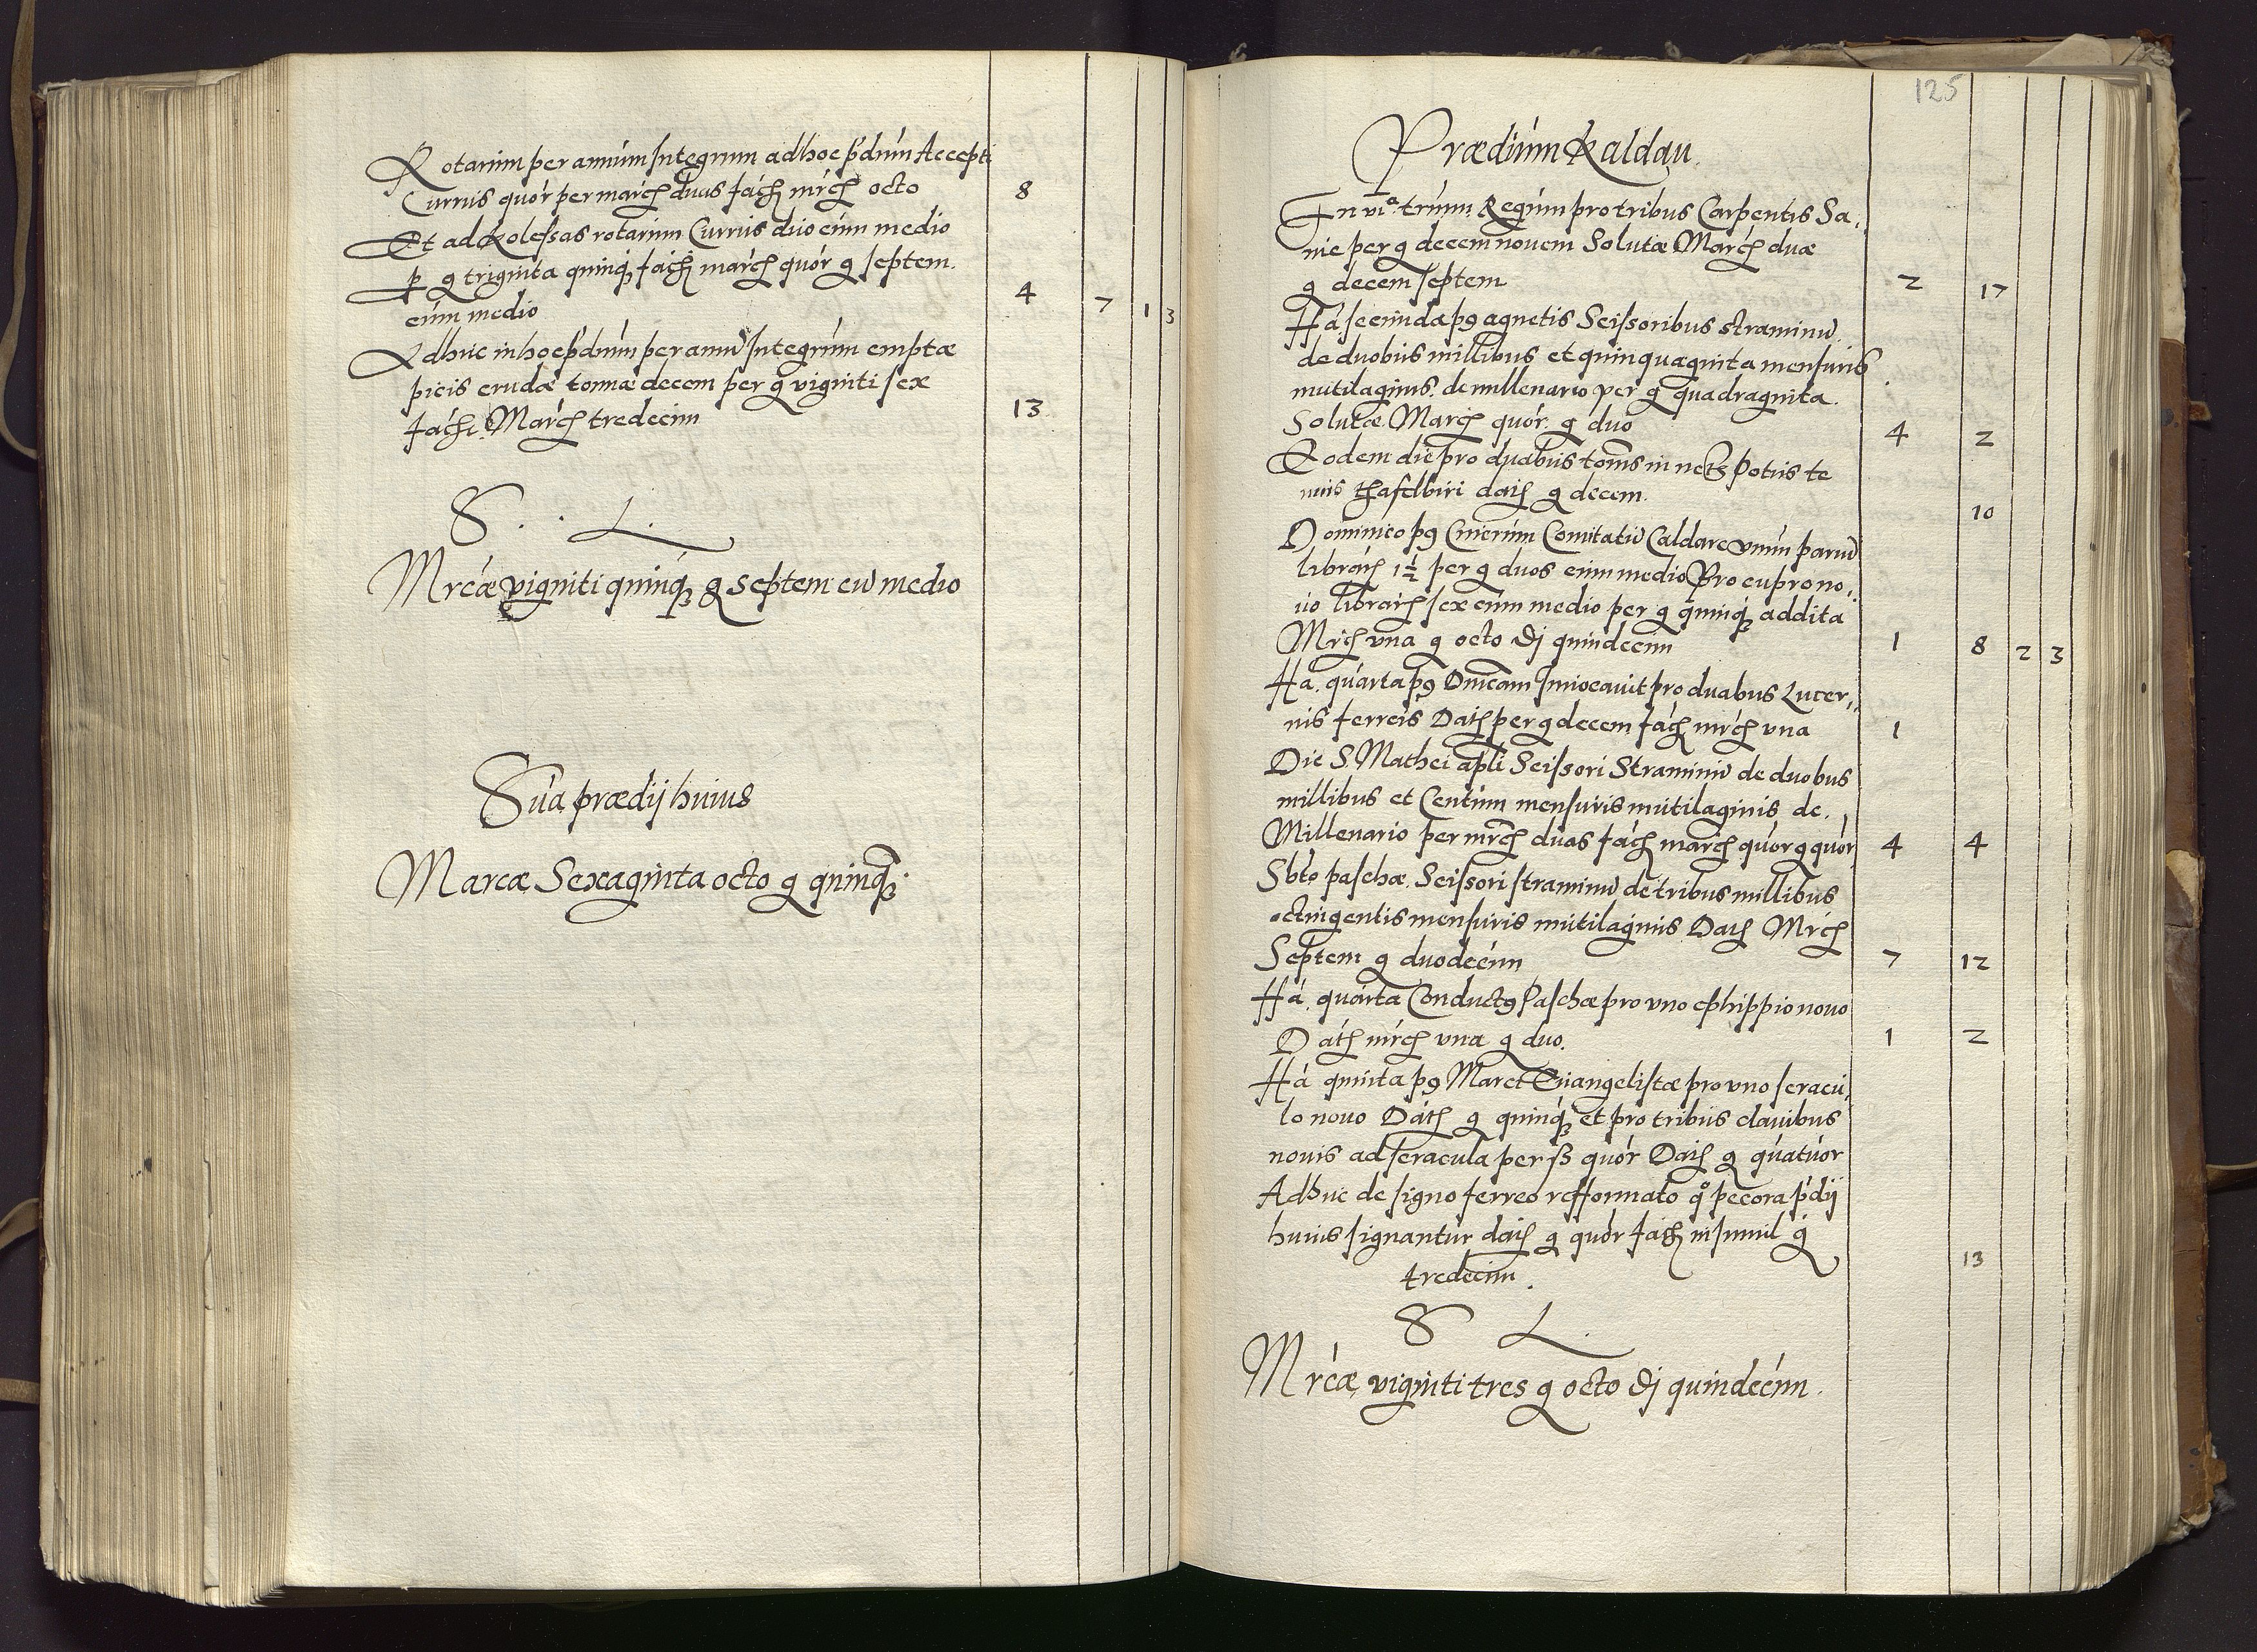 Rotarum per annum Integrum ad hoc p'dium Accepti
Currus quor per march duas fach mrch octo 8
Et ad Kolessas rotarum Currus duo cum medio
p g triginta quinq; fach march quor g septem
cum medio 4 7 1 3
Adhuc in hoc p'dium per annu Integrum emptæ
picis crudæ tonnæ decem per g viginti sex
fach. March tredecim 13
S. L.
Mrcæ viginti quinq; g septem cu medio
Sua prædij huius
Marcæ Sexaginta octo g quinq;
125
Prædium Kaldau.
In via. trium Regum pro tribus Carpentis Sa,,
nie per g decem novem Solutæ March duæ
g decem septem 2 17
Ha. secunda p9 agnetis Scissoribus straminu
de duobus millibus et quinquaginta mensuris
mutilaginis. de millenario per g quadraginta.
Solutæ. March quor. g duo 4 2
Eodem die pro duabus tonis in potus te
nuis thafelbiri dath g decem. 10
Dominico p9 Cinerum Comitatu Caldare vnum paruu
librarh 1½ per g duos cum medio Pro cupro no,,
uo librarh sex cum medio per g quinq; addita
Mrch vna g octo dj quindecim 1 8 2 3
Ha. quarta p9 Dnicam Inuocauit pro duabus Lucer,,
nis ferreis Dath per g decem fach mrch vna 1
Die S. Mathei apli Scissori Straminu de duobus
millibus et Centum mensuris mutilaginis de.
Millenario per mrch duas fach march quor g quor 4 4
Sbto paschæ. Scissori straminu de tribus millibus
octingentis mensuris mutilaginis Dath Mrch
Septem g duodecim 7 12
Ha. quarta Conduct9 Paschæ pro vno ephippio nouo
Dath mrch vna g duo. 1 2
Ha quinta p9 Marci Euangelistæ pro vno seracu,,
lo nouo Dath g quinq; et pro tribus clauibus
nouis ad seracula per ß quor Dath g quatuor
Adhuc de signo ferreo refformato qo pecora p'dij
huius signantur dath g quor fach insimul g
tredecim. 13
S L.
Mrcæ viginti tres g octo dj quindecim.